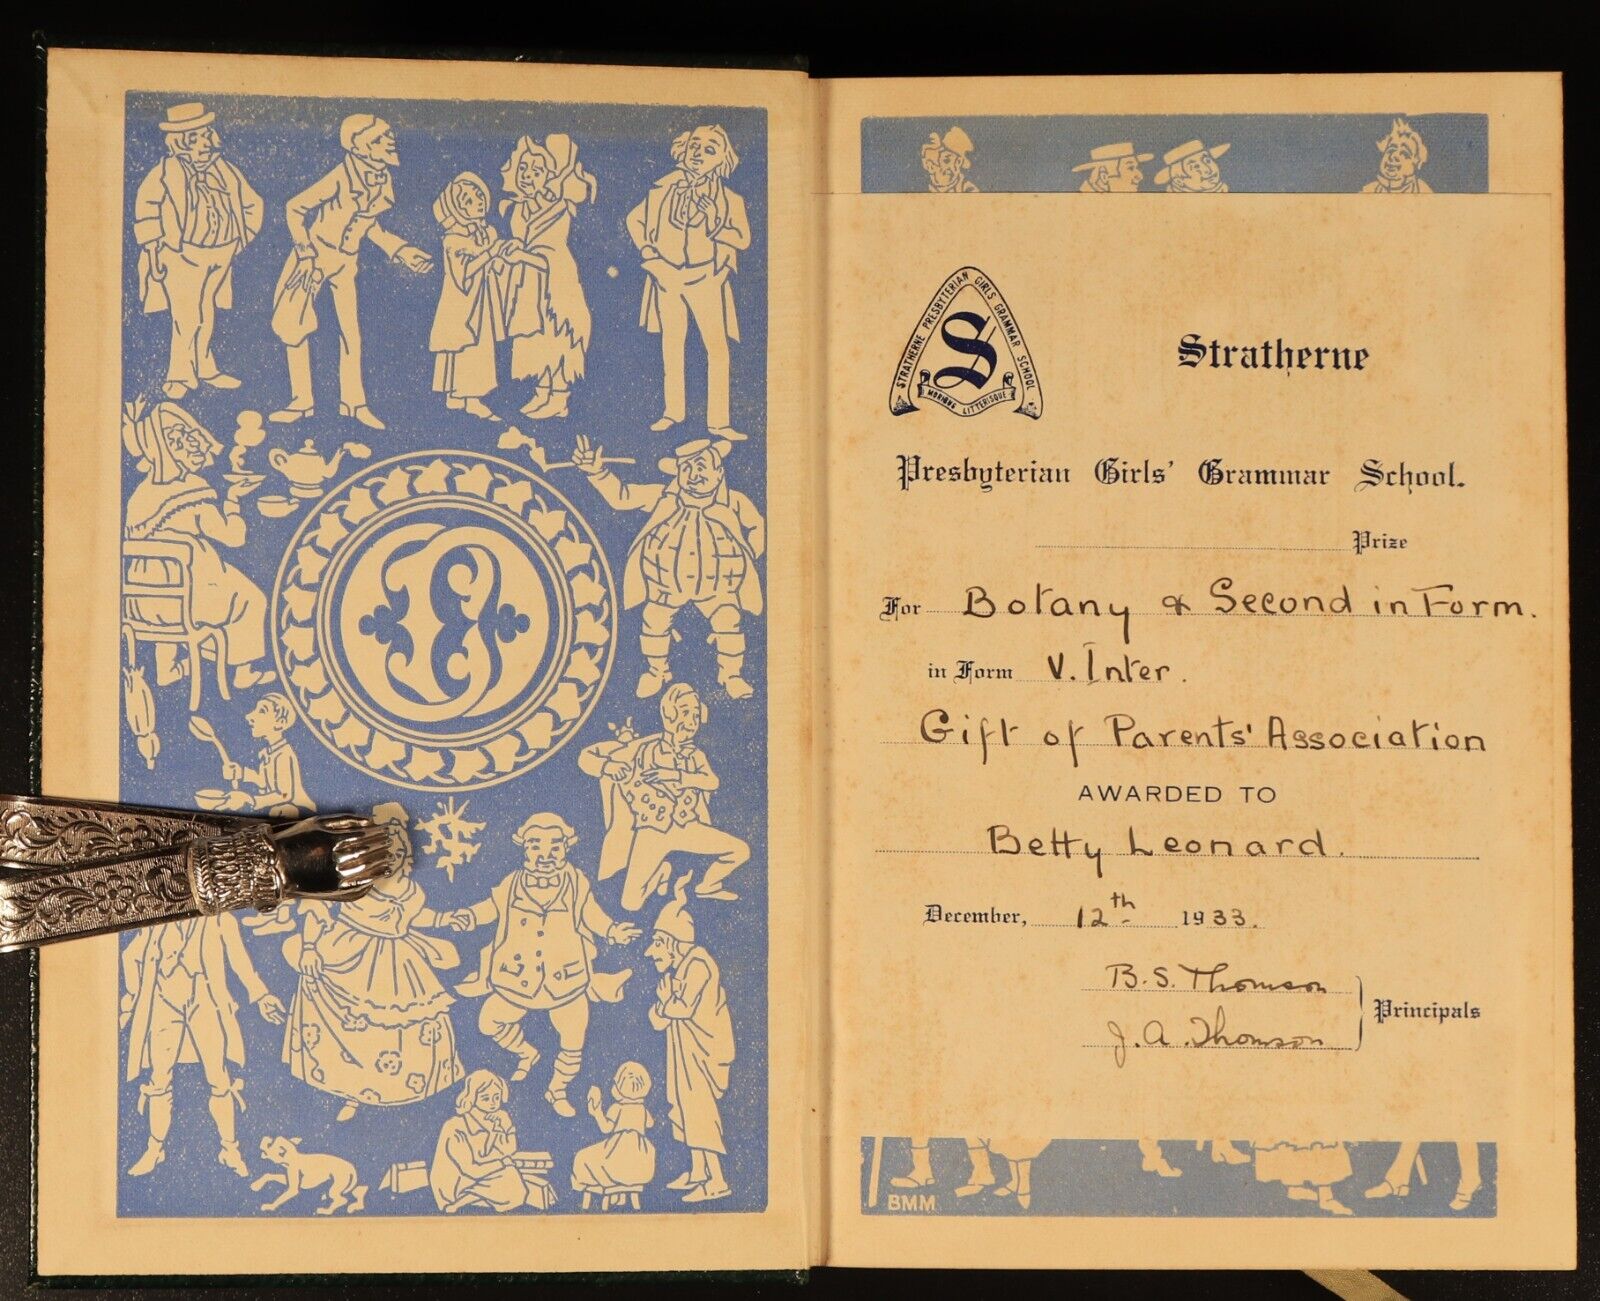 STRATHERNE PRESBYTERIAN GIRLS GRAMMAR SCHOOL
S
MORIBVS LITTERISQUE
Stratherne
Presbyterian Girls' Grammar School.
Prize
For Botany & Second in Form.
in Form V. Inter.
Gift of Parents' Association
AWARDED TO
Betty Leonard.
December, 12th 1933.
B. S. Thomson
J. A. Thomson
Principals
BMM